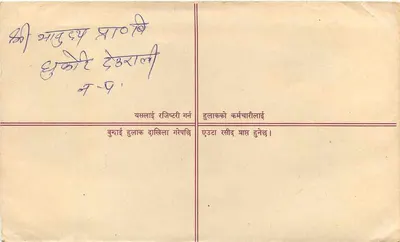 श्री भानुदय प्रा०वि
धुर्कोट देउराली
न - प -
यसलाई रजिष्टरी गर्न हुलाकको कर्मचारीलाई
बुझाई हुलाक दाखिला गरेपछि एउटा रसीद प्राप्त हुनेछ।